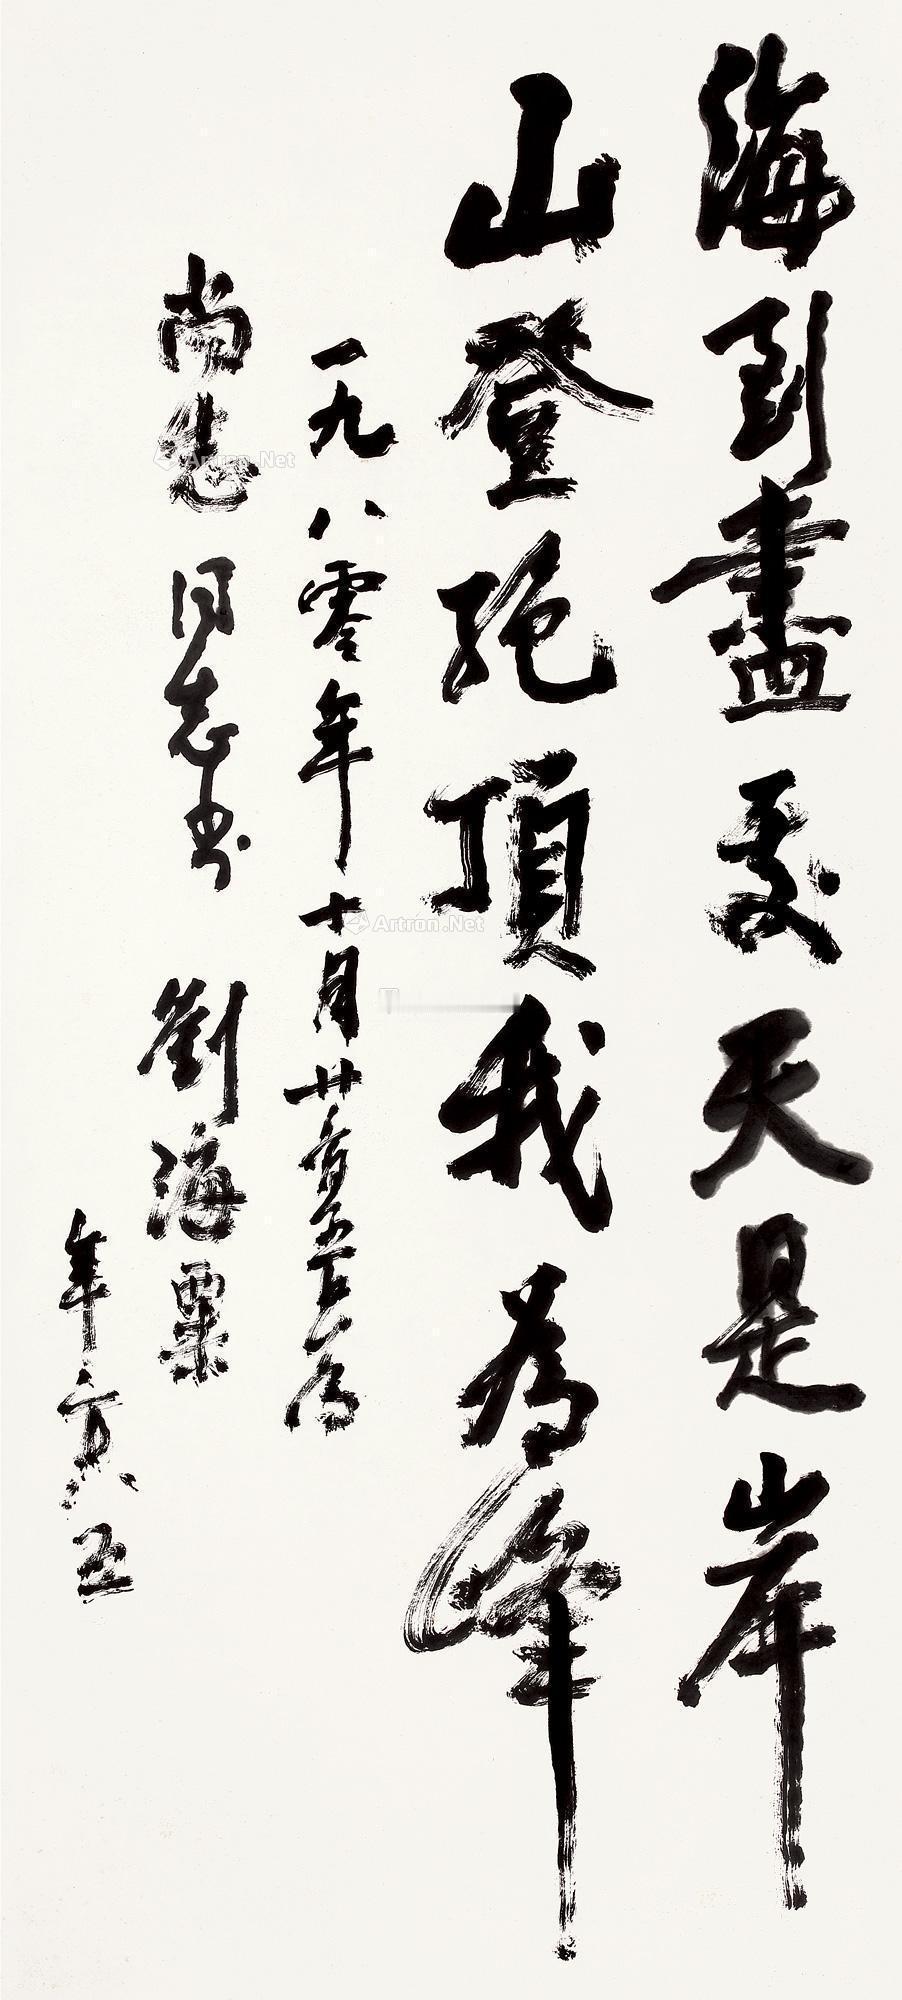 海到盡處天是岸
山登絕頂我為峰
一九八零年十月廿
尚志同志書 劉海粟
年方八五
Artron.Net
Artron.Net